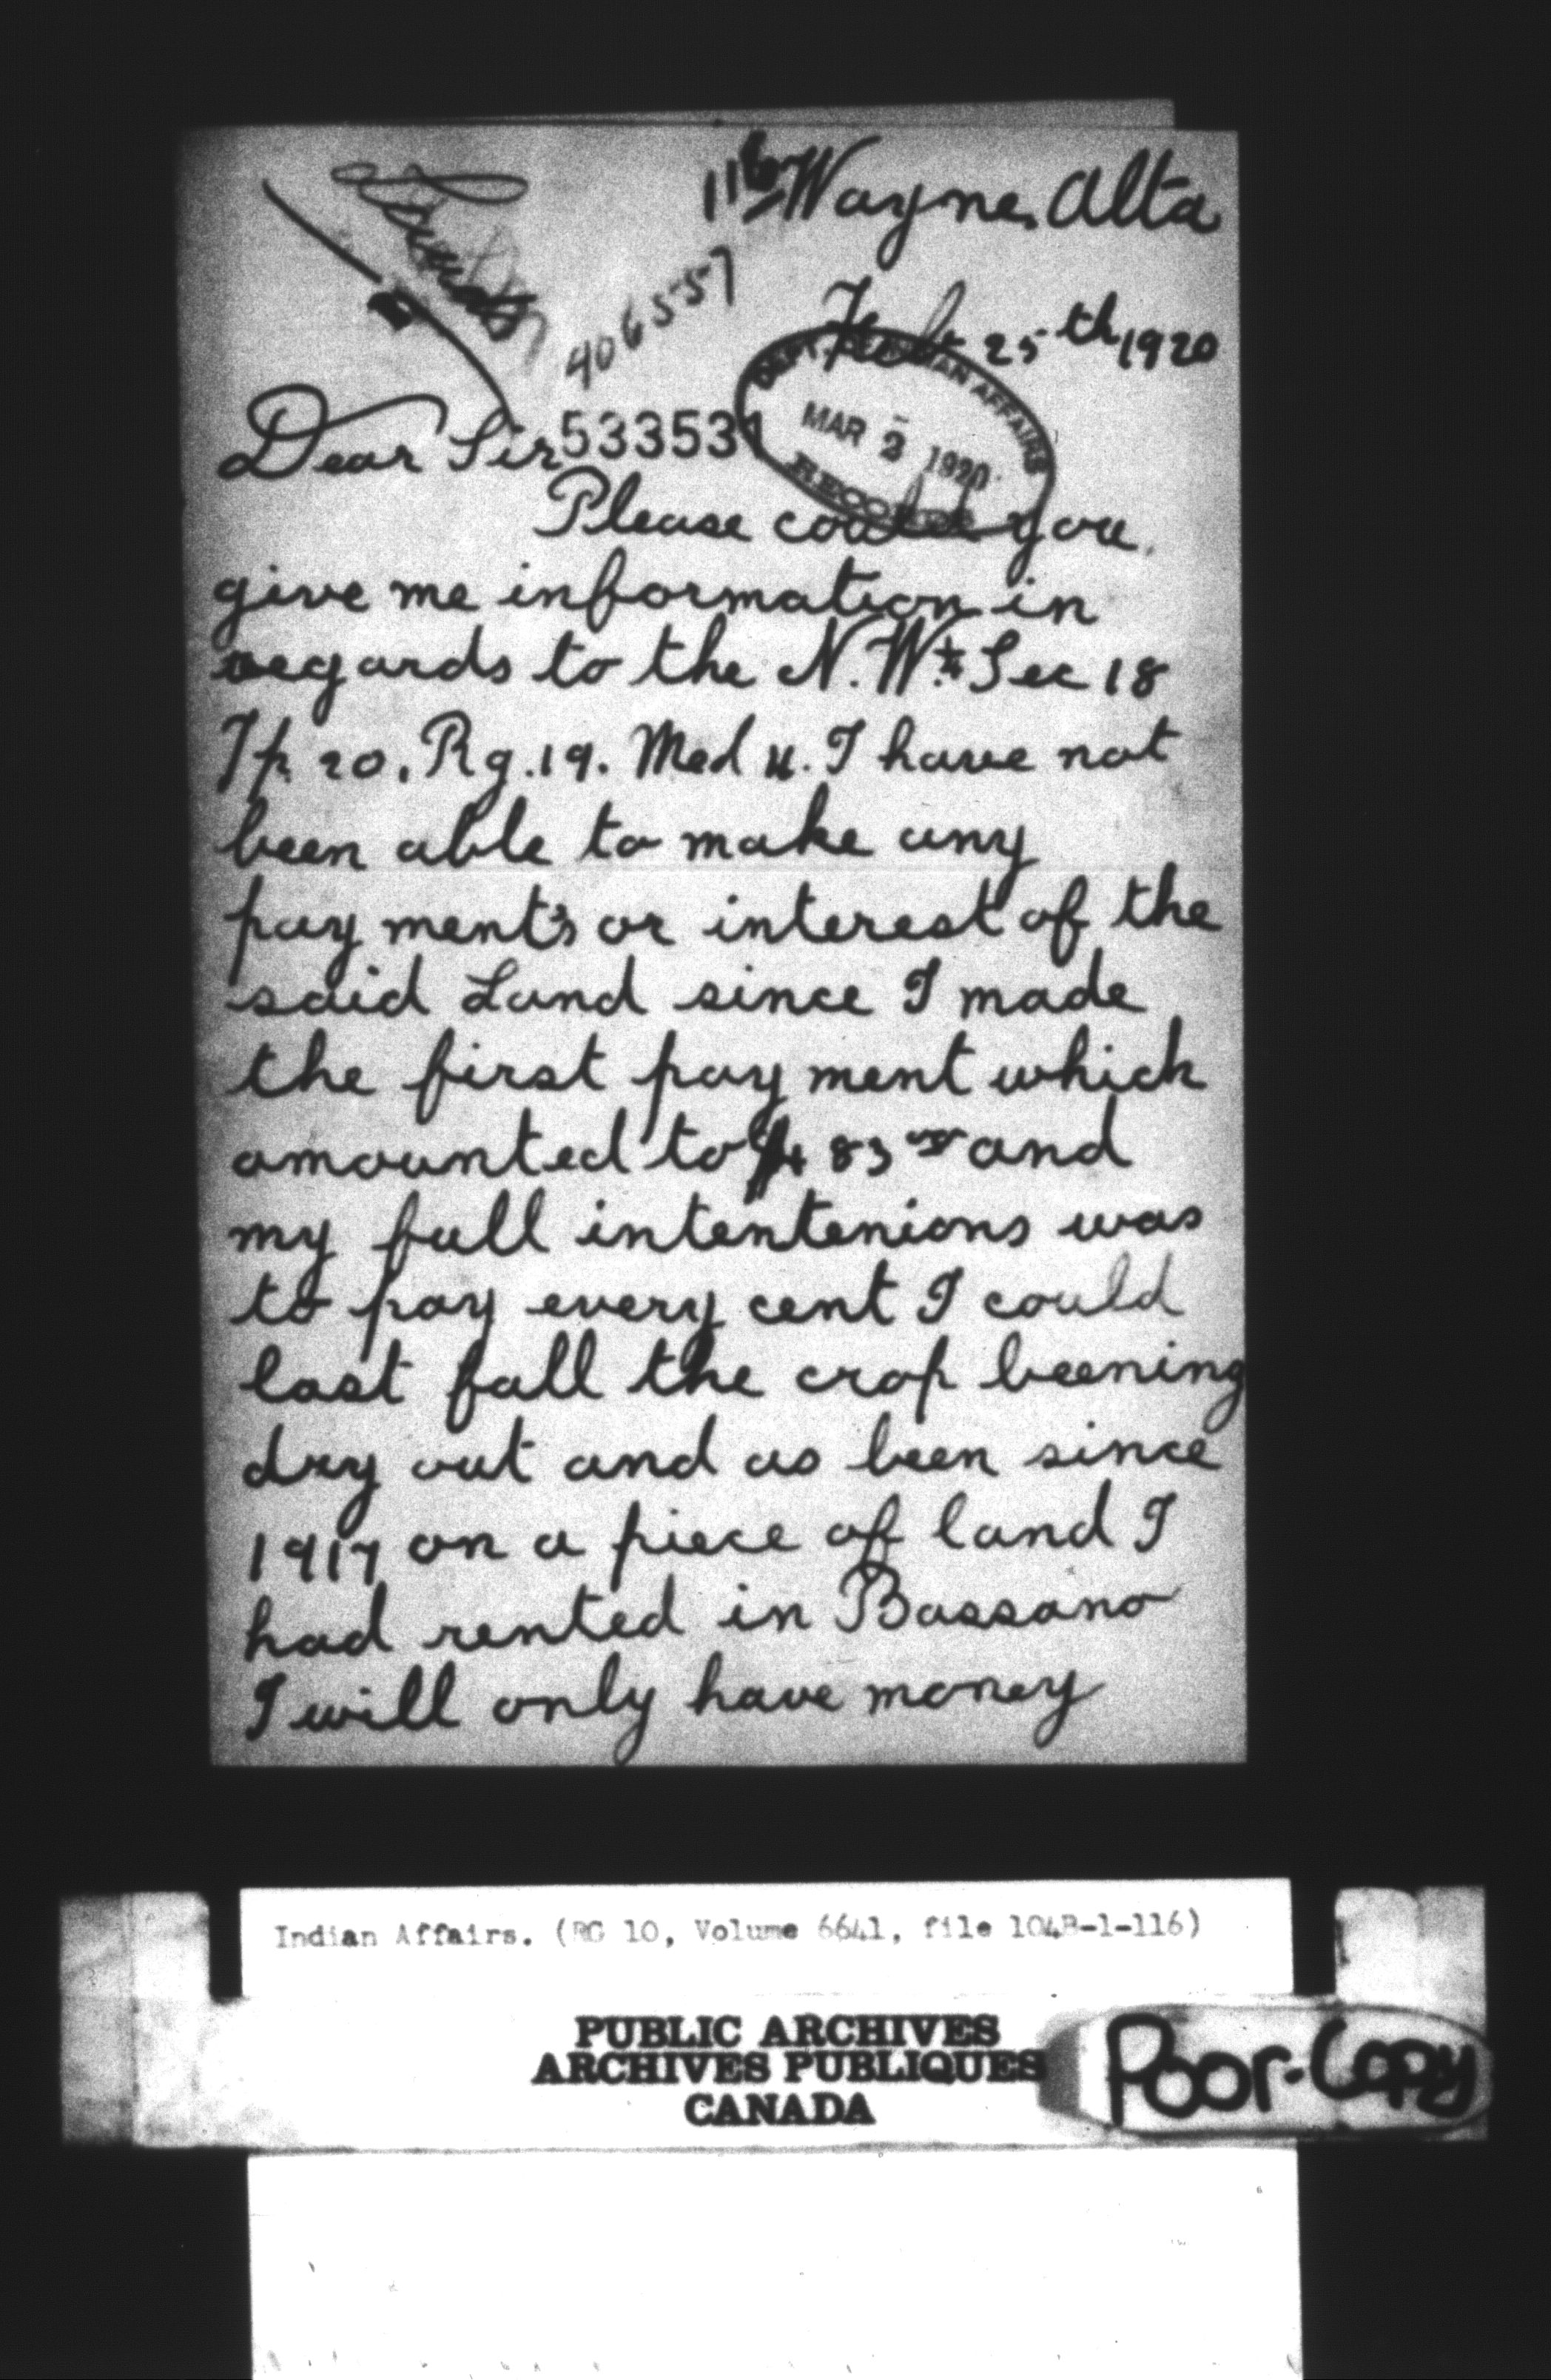 116 Wayne, Alta
406557
Feb 25th 1920
DEPT. INDIAN AFFAIRS
MAR 2 1920
RECORDS
Dear Sir 533531
Please could you
give me information in
regards to the N.W.¼ Sec 18
Tp. 20, Rg. 19. Med 4. I have not
been able to make any
pay ment's or interest of the
said Land since I made
the first pay ment which
amounted to 83 00 and
my full intentenions was
to pay every cent I could
last fall the crop beening
dry out and as been since
1917 on a piece of land I
had rented in Bassano
I will only have money
Indian Affairs. (RG 10, Volume 6641, file 104B-1-116)
PUBLIC ARCHIVES
ARCHIVES PUBLIQUES
CANADA
Poor-Copy